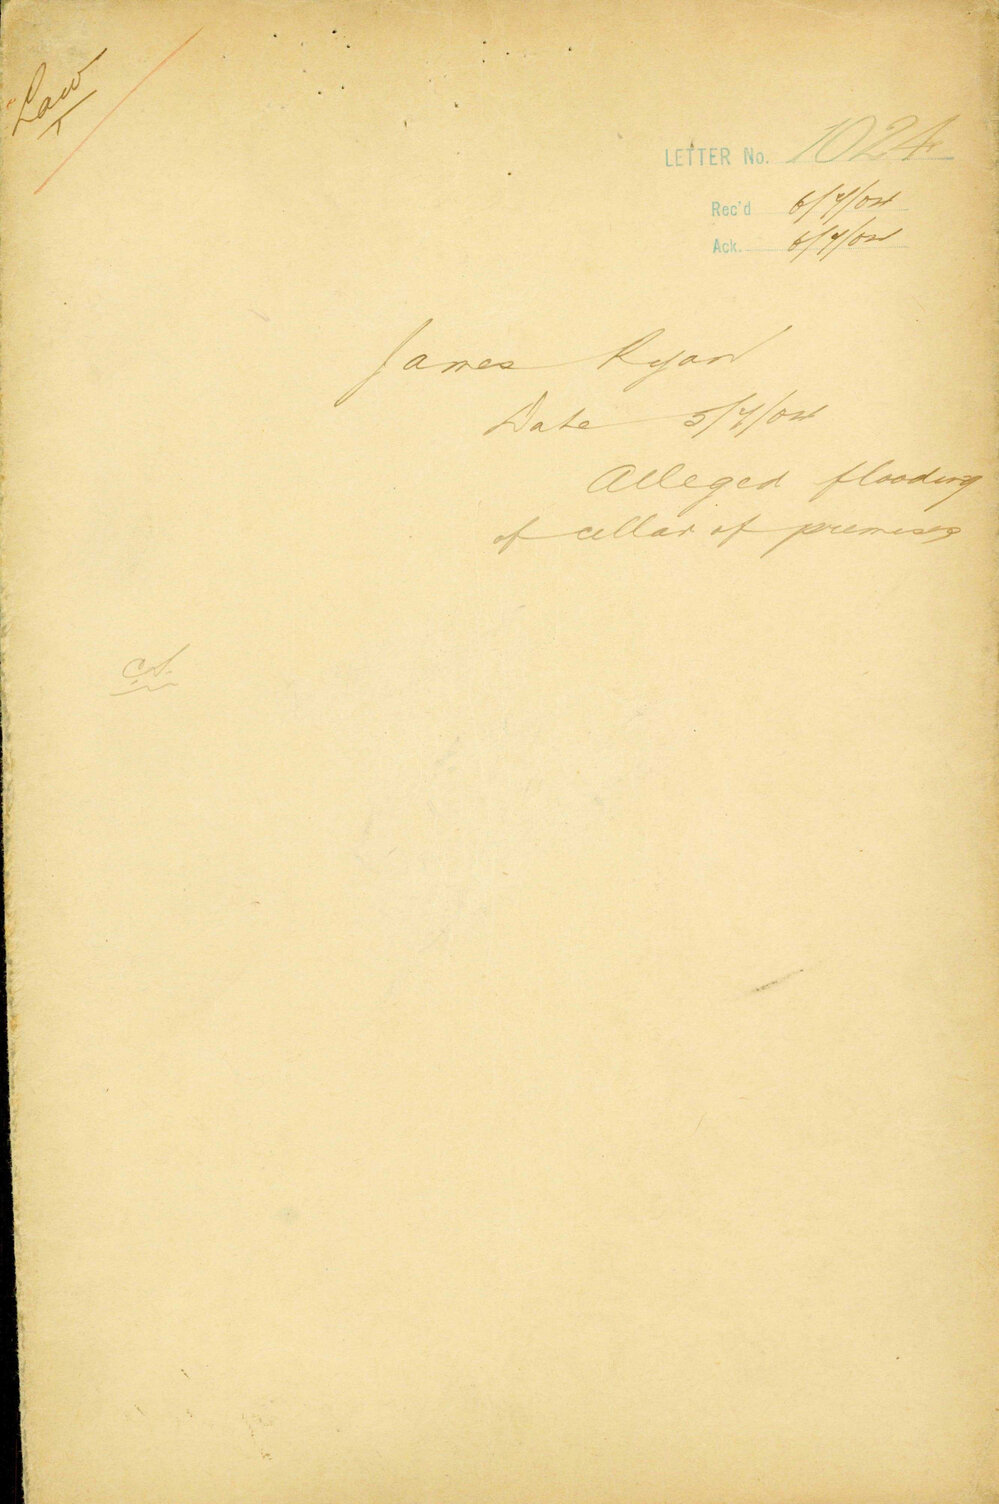 Law
LETTER No. 1024
Rec'd 6/7/04
Ack. 6/7/04
James Ryan
Date 5/7/04
Alleged flooding
of cellar of premises